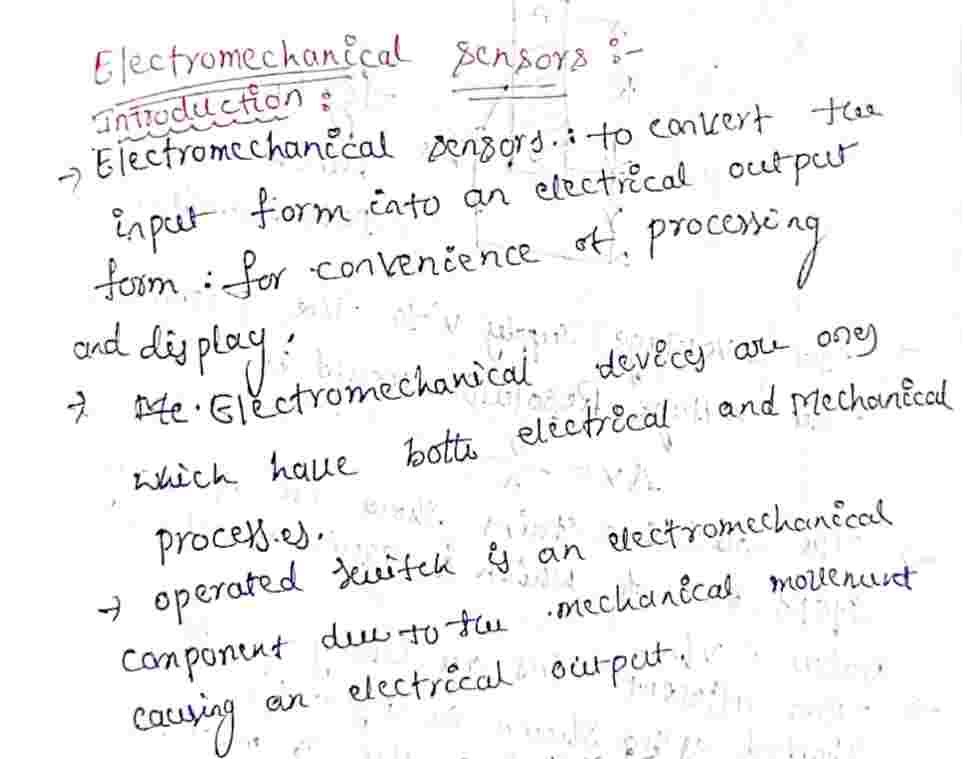 Electromechanical Sensors :-
Introduction :
→ Electromechanical sensors : to convert the
input form into an electrical output
form : for convenience of processing
and display.
→ The Electromechanical devices are ones
which have both electrical and Mechanical
processes.
→ operated switch is an electromechanical
component due to the mechanical movement
causing an electrical output.